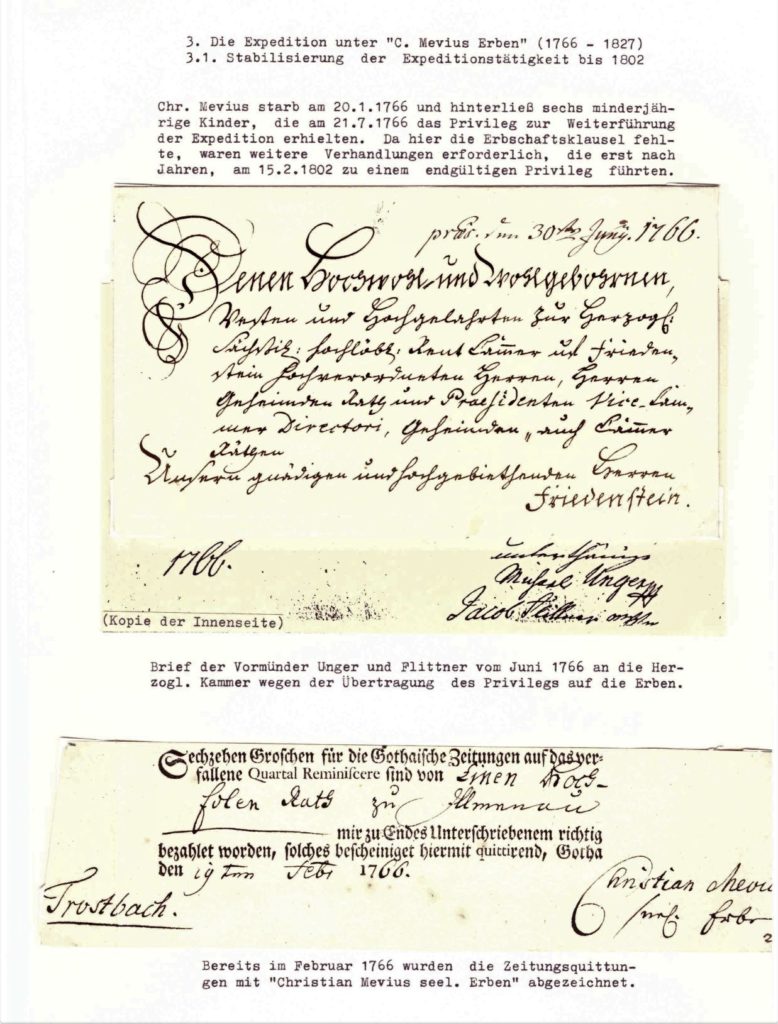 3. Die Expedition unter "C. Mevius Erben" (1766 - 1827)
3.1. Stabilisierung der Expeditionstätigkeit bis 1802
Chr. Mevius starb am 20.1.1766 und hinterließ sechs minderjäh-
rige Kinder, die am 21.7.1766 das Privileg zur Weiterführung
der Expedition erhielten. Da hier die Erbschaftsklausel fehl-
te, waren weitere Verhandlungen erforderlich, die erst nach
Jahren, am 15.2.1802 zu einem endgültigen Privileg führten.
präs. den 30ten Junÿ. 1766.
Denen Hochwohl- und Wohlgebohrnen,
Vesten und Hochgelahrten zur Herzogl:
Sächsisch: hochlöbl: Rent Cammer uf Frieden„
stein Hochverordneten Herren, Herren
Geheimden Rath und Praesidenten Vice-Cam„
mer Directori, Geheimden„ auch Cammer
Räthen
Unsern gnädigen und hochgebiethenden Herren
Friedenstein.
1766.
unterthänig
Michael Unger
Jacob Flittner
(Kopie der Innenseite)
Brief der Vormünder Unger und Flittner vom Juni 1766 an die Her-
zogl. Kammer wegen der Übertragung des Privilegs auf die Erben.
Sechzehen Groschen für die Gothaische Zeitungen auf das ver-
fallene Quartal Reminiscere sind von Einen Hoch-
Edlen Rath zu Illmenau
mir zu Endes Unterschriebenem richtig
bezahlet worden, solches bescheiniget hiermit quittirend, Gotha
den 19ten Febr 1766.
Trostbach.
Christian Meviu
seel. Erbe
2
Bereits im Februar 1766 wurden die Zeitungsquittun-
gen mit "Christian Mevius seel. Erben" abgezeichnet.